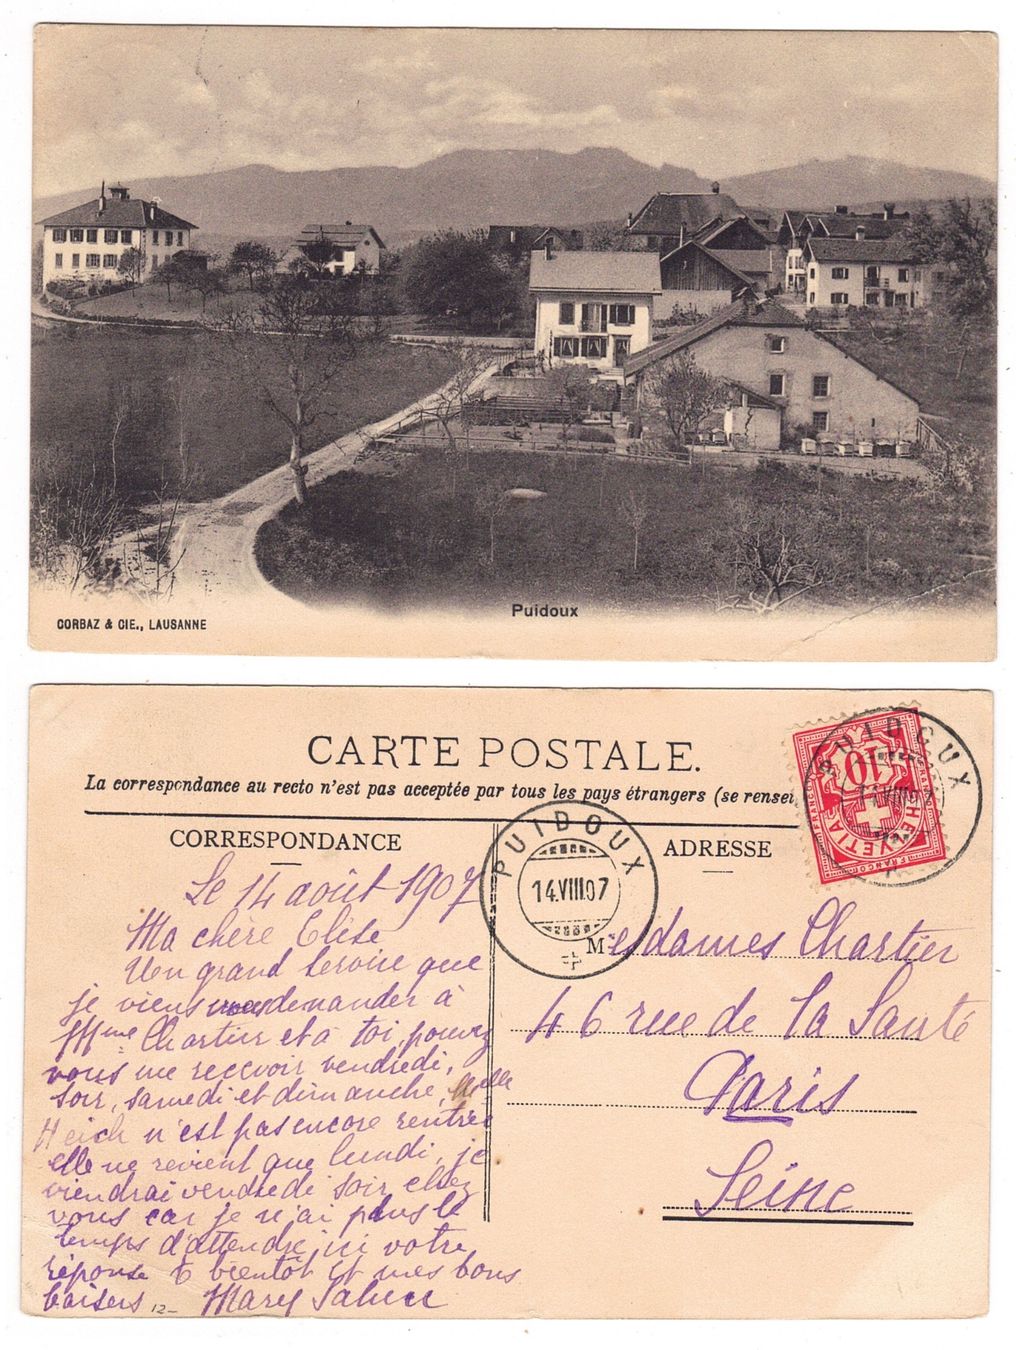 Puidoux
CORBAZ & CIE., LAUSANNE
CARTE POSTALE.
La correspondance au recto n'est pas acceptée par tous les pays étrangers (se rensei
CORRESPONDANCE
ADRESSE
PUIDOUX
14.VIII.07
PUIDOUX
10
HELVETIA
FRANCO
Le 14 août 1907
Ma chère Elise
Un grand service que
je viens vous demander à
Mme Chartier et à toi, pouvez
vous me recevoir vendredi,
soir, samedi et dimanche, Melle
n'est pas encore rentrée
elle ne revient que lundi, je
viendrai vendredi soir chez
vous car je n'ai plus le
temps d'attendre ici votre
réponse à bientôt et mes bons
baisers Mary
12-
Mesdames Chartier
46 rue de la Santé
Paris
Seine